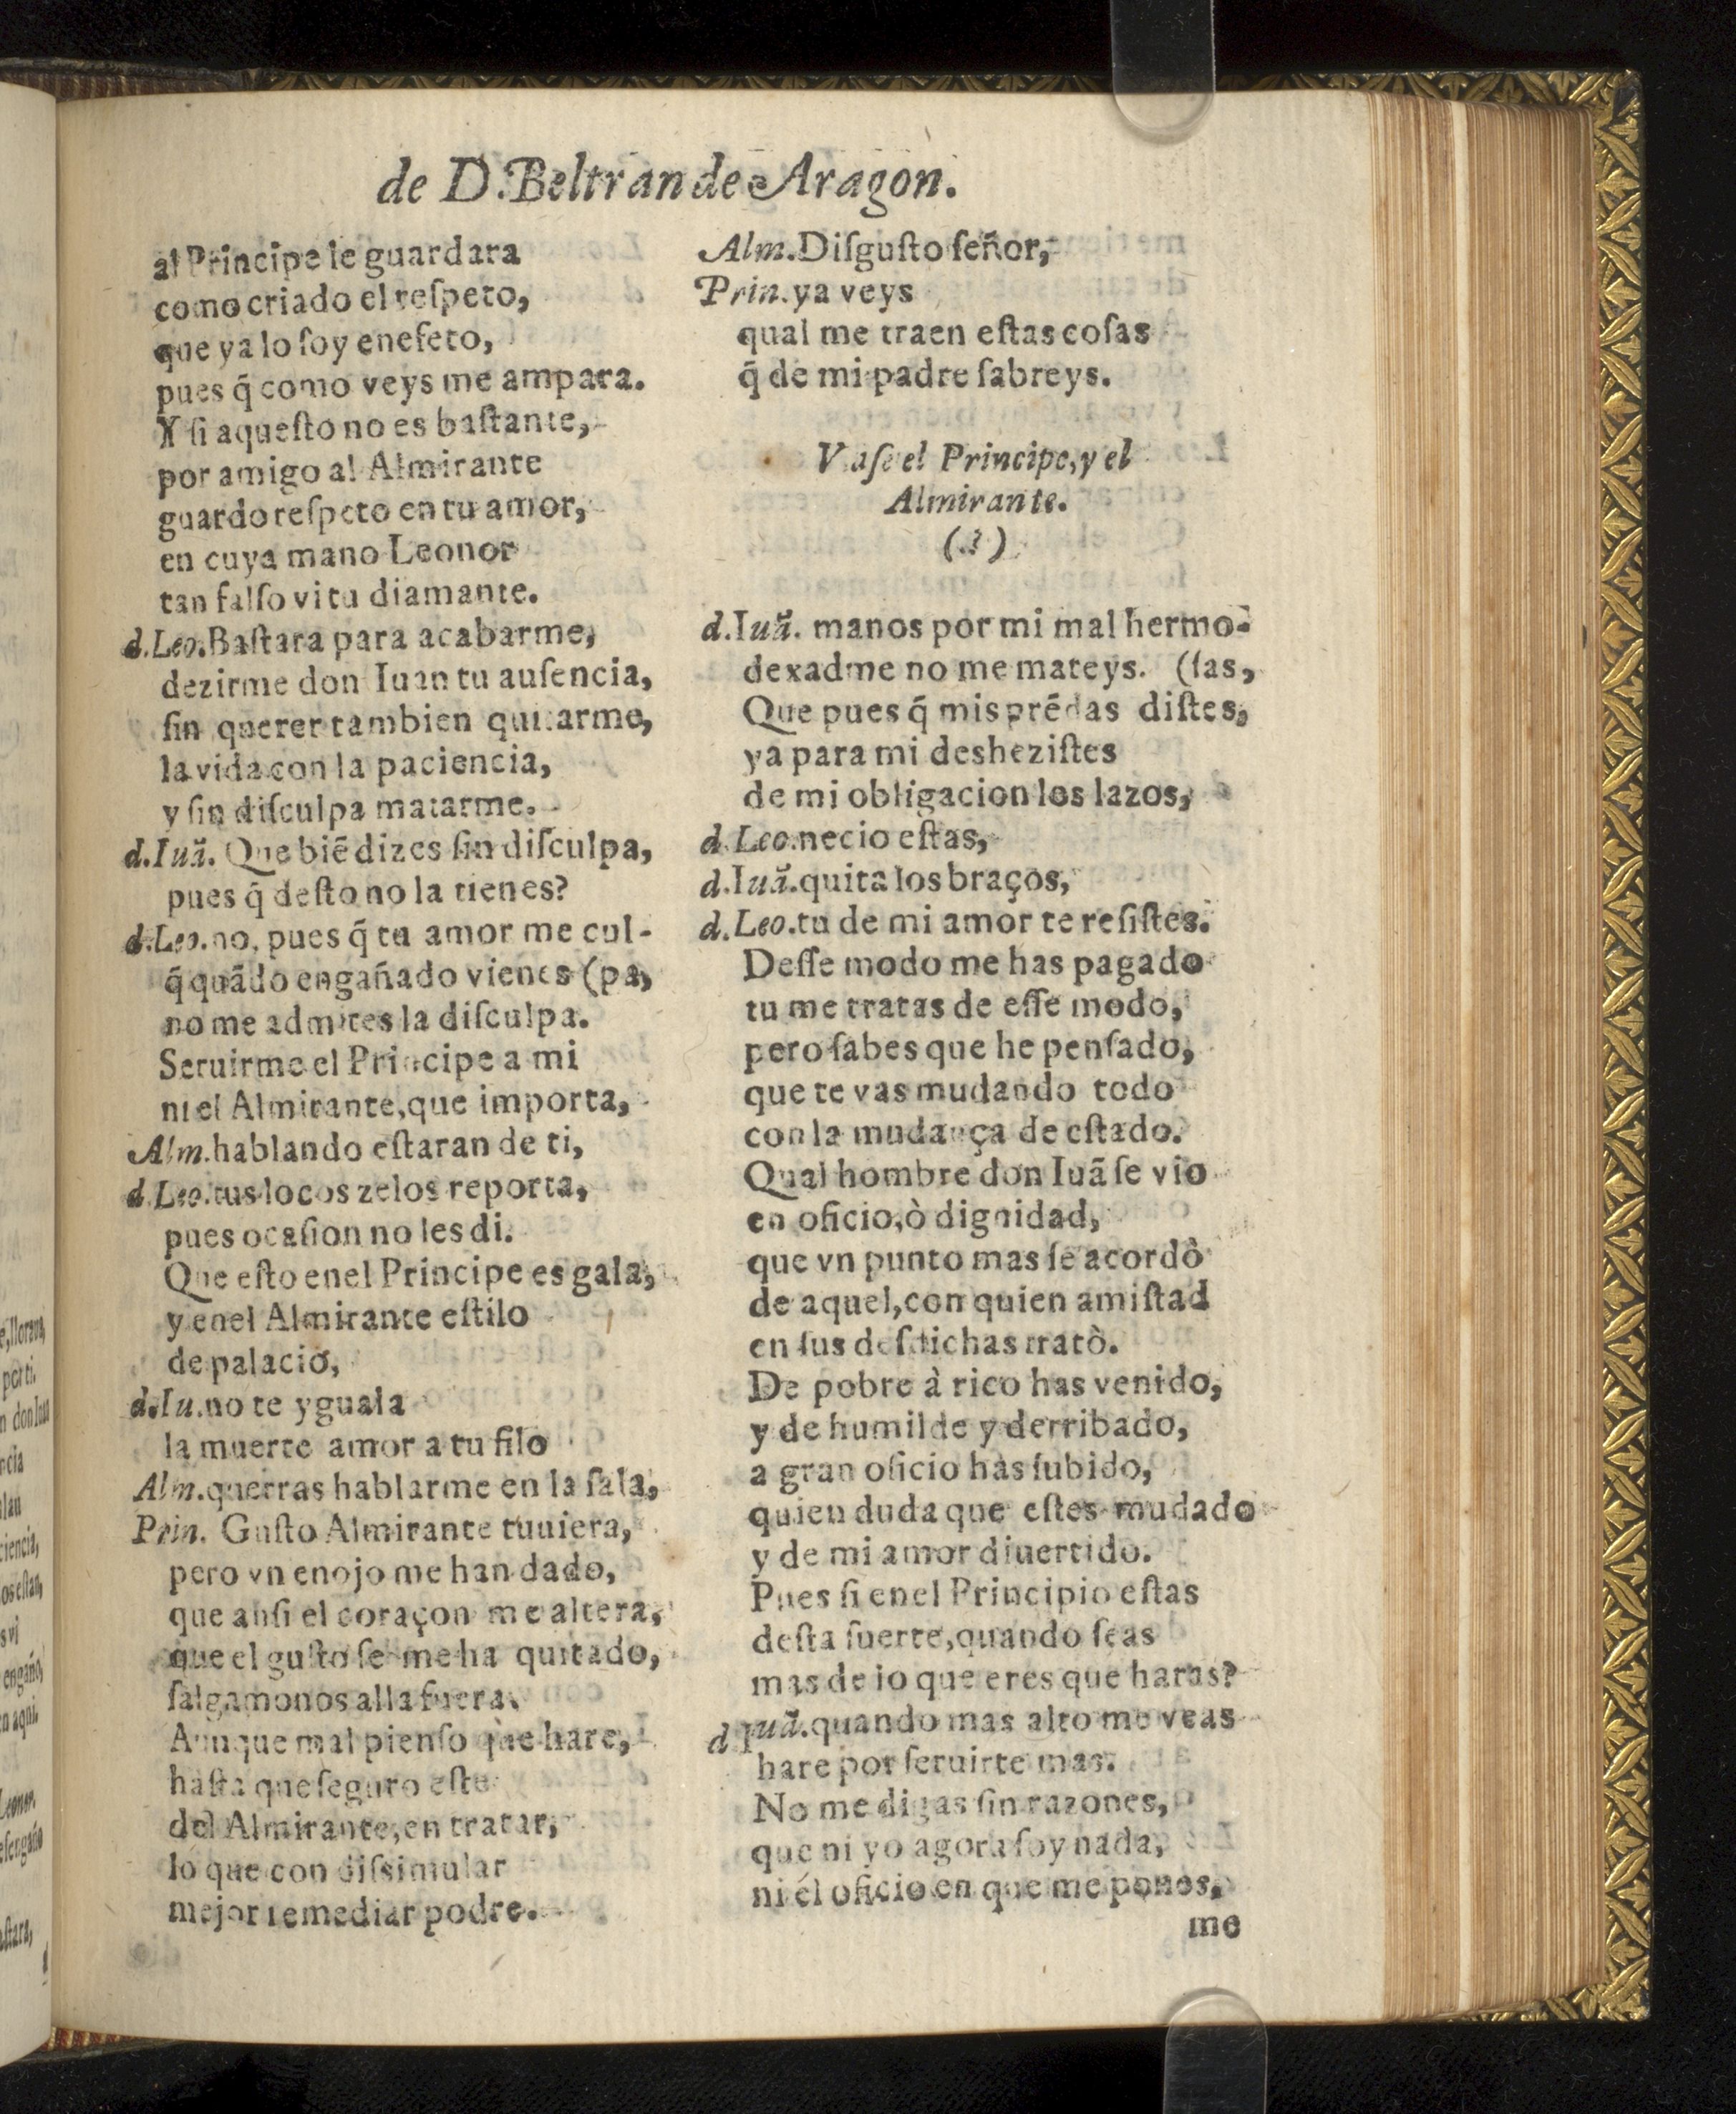 de D. Beltran de Aragon.
al Principe le guardara
como criado el reſpeto,
que ya lo ſoy enefeto,
pues q̃ como veys me ampara.
Y ſi aqueſto no es baſtante,
por amigo al Almirante
guardo reſpeto en tu amor,
en cuya mano Leonor
tan falſo vi tu diamante.
d.Leo. Baſtara para acabarme,
dezirme don Iuan tu auſencia,
ſin querer tambien quitarme,
la vida con la paciencia,
y ſin diſculpa matarme.
d.Iuã. Que biẽ dizes ſin diſculpa,
pues q̃ deſto no la tienes?
d.Leo. no, pues q̃ tu amor me cul-
q̃ quãdo engañado vienes (pa,
no me admites la diſculpa.
Seruirme el Principe a mi
ni el Almirante, que importa,
Alm. hablando eſtaran de ti,
d.Leo. tus locos zelos reporta,
pues ocaſion no les di.
Que eſto enel Principe es gala,
y enel Almirante eſtilo
de palacio,
d.Iu. no te yguala
la muerte amor a tu filo
Alm. querras hablarme en la ſala,
Prin. Guſto Almirante tuuiera,
pero vn enojo me han dado,
que anſi el coraçon me altera,
que el guſto ſe me ha quitado,
ſalgamonos alla fuera.
Aunque mal pienſo que hare,
haſta que ſeguro eſte
del Almirante, en tratar,
lo que con diſsimular
mejor remediar podre.
Alm. Diſguſto ſeñor,
Prin. ya veys
qual me traen eſtas coſas
q̃ de mi padre ſabreys.
Vaſe el Principe, y el
Almirante.
(.?.)
d.Iuã. manos por mi mal hermo-
dexadme no me mateys. (ſas,
Que pues q̃ mis prẽdas diſtes,
ya para mi desheziſtes
de mi obligacion los lazos,
d.Leo. necio eſtas,
d.Iuã. quita los braços,
d.Leo. tu de mi amor te reſiſtes.
Deſſe modo me has pagado
tu me tratas de eſſe modo,
pero ſabes que he penſado,
que te vas mudando todo
con la mudança de eſtado.
Qual hombre don Iuã ſe vio
en oficio, ò dignidad,
que vn punto mas ſe acordò
de aquel, con quien amiſtad
en ſus deſdichas tratò.
De pobre à rico has venido,
y de humilde y derribado,
a gran oficio has ſubido,
quien duda que eſtes mudado
y de mi amor diuertido.
Pues ſi enel Principio eſtas
deſta ſuerte, quando ſeas
mas de lo que eres que haras?
d Iuã. quando mas alto me veas
hare por ſeruirte mas.
No me digas ſin razones,
que ni yo agora ſoy nada,
ni él oficio en que me pones,
me